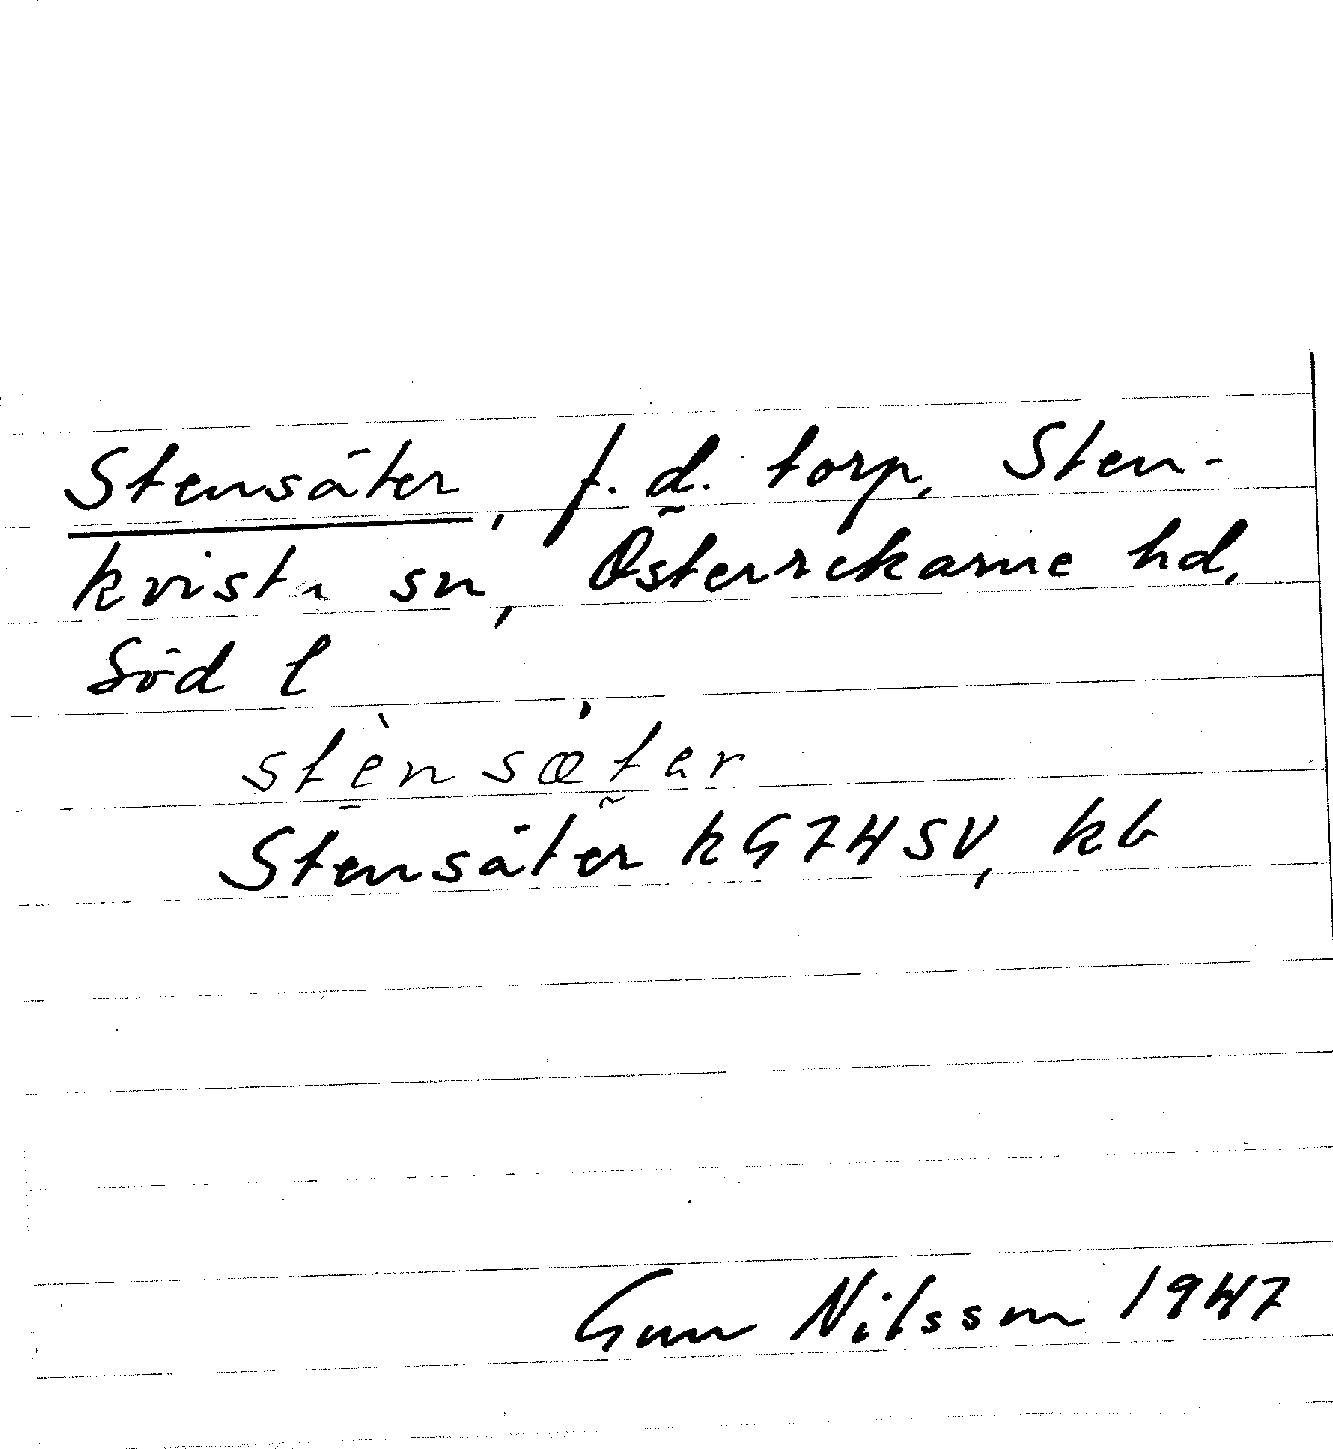 Stensäter, f.d. torp, Sten-
kvista sn, Österrekarne hd,
Söd l
stènsætər
Stensäter kG74SV, kb
Gun Nilsson 1947